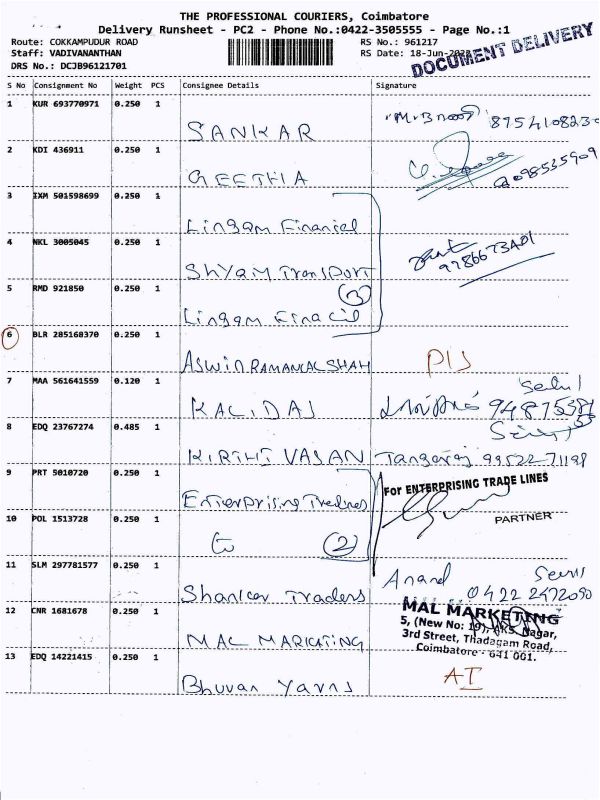 THE PROFESSIONAL COURIERS, Coimbatore
Delivery Runsheet - PC2 - Phone No.:0422-3505555 - Page No.:1
Route: COKKAMPUDUR ROAD RS No.: 961217
Staff: VADIVANANTHAN RS Date: 18-Jun-
DRS No.: DCJB96121701 DOCUMENT DELIVERY
S No Consignment No Weight PCS Consignee Details Signature
1 KUR 693770971 0.250 1
SANKAR
2 KDI 436911 0.250 1
GEETHA
3 IXM 501598699 0.250 1
Lingam Financiel
4 NKL 3005045 0.250 1
Shyam Transport
5 RMD 921850 0.250 1
(3)
Lingam Finacil
6 BLR 285168370 0.250 1
ASWIN RAMANCAL SHAH PIS
7 MAA 561641559 0.120 1
KALIDAS
8 EDQ 23767274 0.485 1
KIRTHI VASAN Tangaraj 99522 71198
9 PRT 5010720 0.250 1
For ENTERPRISING TRADE LINES
Enterprising Tredines
10 POL 1513728 0.250 1 PARTNER
(2)
11 SLM 297781577 0.250 1
Anand Seal
Shankar Traders 0422 2472090
12 CNR 1681678 0.250 1 MAL MARKETING
5, (New No: 19), AKS. Nagar,
MAL MARKETING 3rd Street, Thadagam Road,
13 EDQ 14221415 0.250 1 Coimbatore - 641 001.
Bhuvan Yarns AI